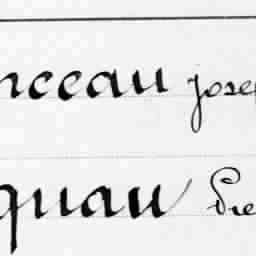 nceau Jose
quau Pie